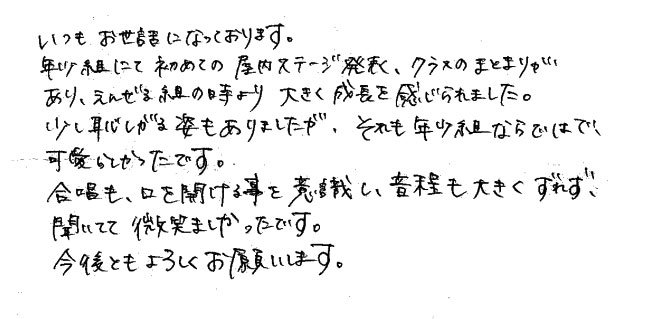 いつもお世話になっております。
年少組にて初めての屋内ステージ発表、クラスのまとまりが
あり、えんぜる組の時より大きく成長を感じられました。
少し恥しがる姿もありましたが、それも年少組ならではで、
可愛らしかったです。
合唱も、口を開ける事を意識し、音程も大きくずれず、
聞いてて微笑ましかったです。
今後ともよろしくお願いします。